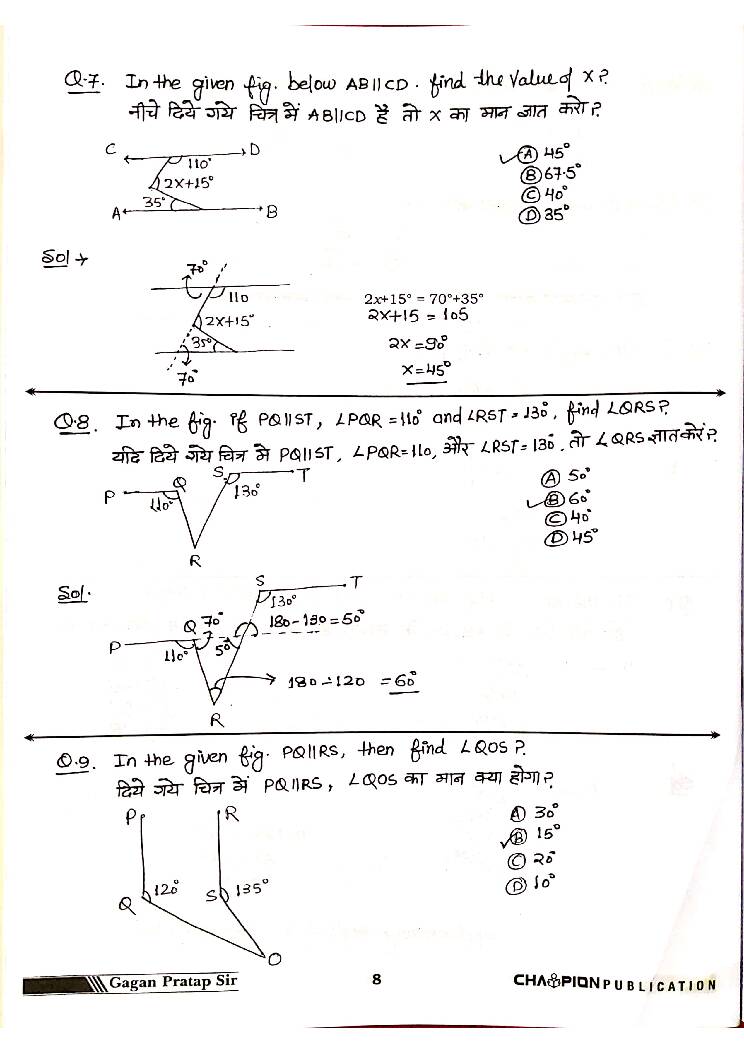 Q.7. In the given fig. below AB||CD. find the Value of X?
नीचे दिये गये चित्र में AB||CD है तो X का मान ज्ञात करो?
C D
110°
2X+15°
35°
A B
Ⓐ 45°
Ⓑ 67.5°
Ⓒ 40°
Ⓓ 35°
Sol →
70°
110
2X+15°
35°
70°
2x+15° = 70°+35°
2X+15 = 105
2X = 90°
X = 45°
Q.8. In the fig. if PQ||ST, ∠PQR = 110° and ∠RST = 130°, find ∠QRS?
यदि दिये गये चित्र मे PQ||ST, ∠PQR = 110, और ∠RST = 130°, तो ∠QRS ज्ञात करें?
P Q S T
110° 130°
R
Ⓐ 50°
Ⓑ 60°
Ⓒ 40°
Ⓓ 45°
Sol.
S T
130°
Q 70° 180-130 = 50°
P 110° 50°
180-120 = 60°
R
Q.9. In the given fig. PQ||RS, then find ∠QOS?
दिये गये चित्र में PQ||RS, ∠QOS का मान क्या होगा?
P R
Q 120° S 135°
O
Ⓐ 30°
Ⓑ 15°
Ⓒ 20°
Ⓓ 10°
Gagan Pratap Sir 8 CHAMPION PUBLICATION